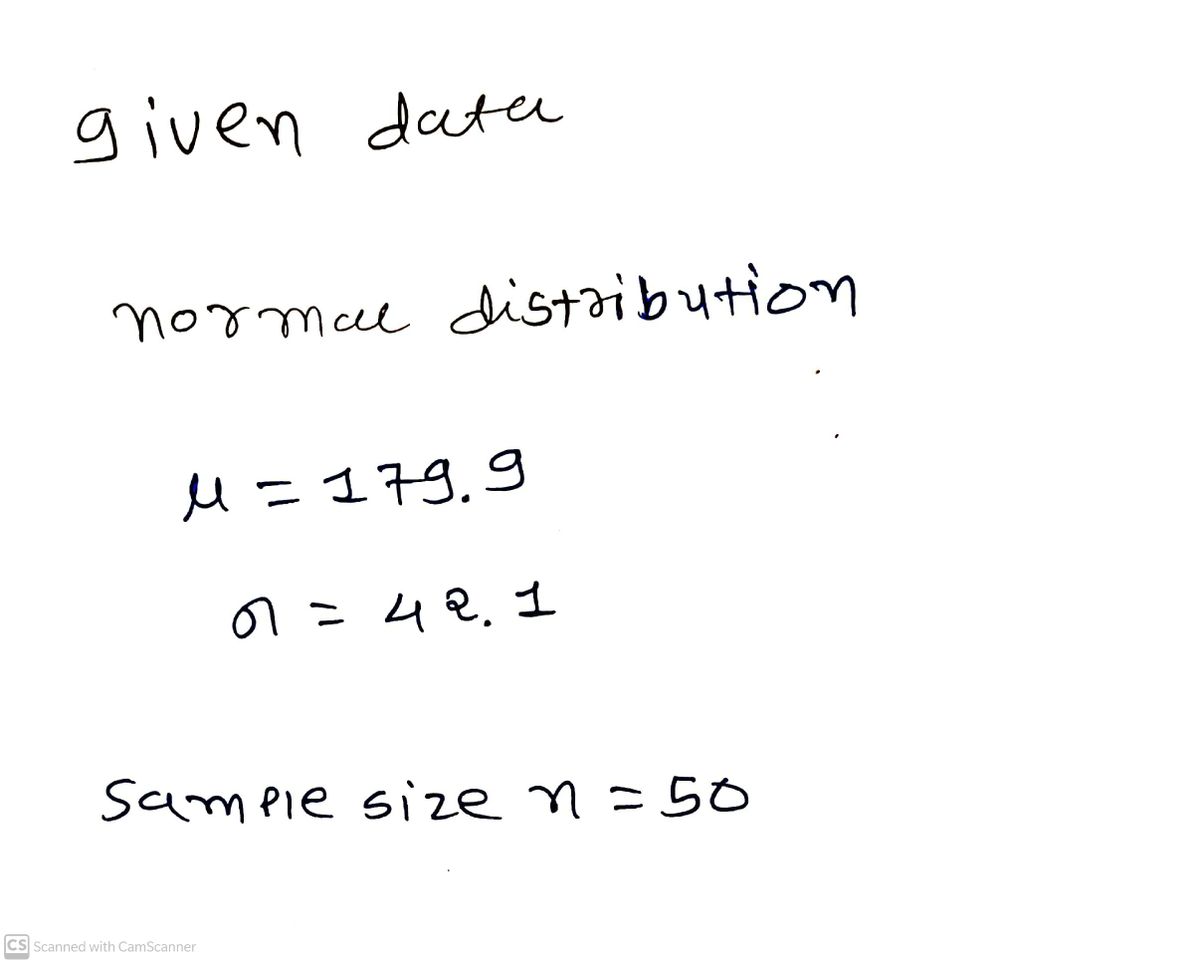 given data
normal distribution
μ = 179.9
σ = 42.1
Sample size n = 50
CS Scanned with CamScanner